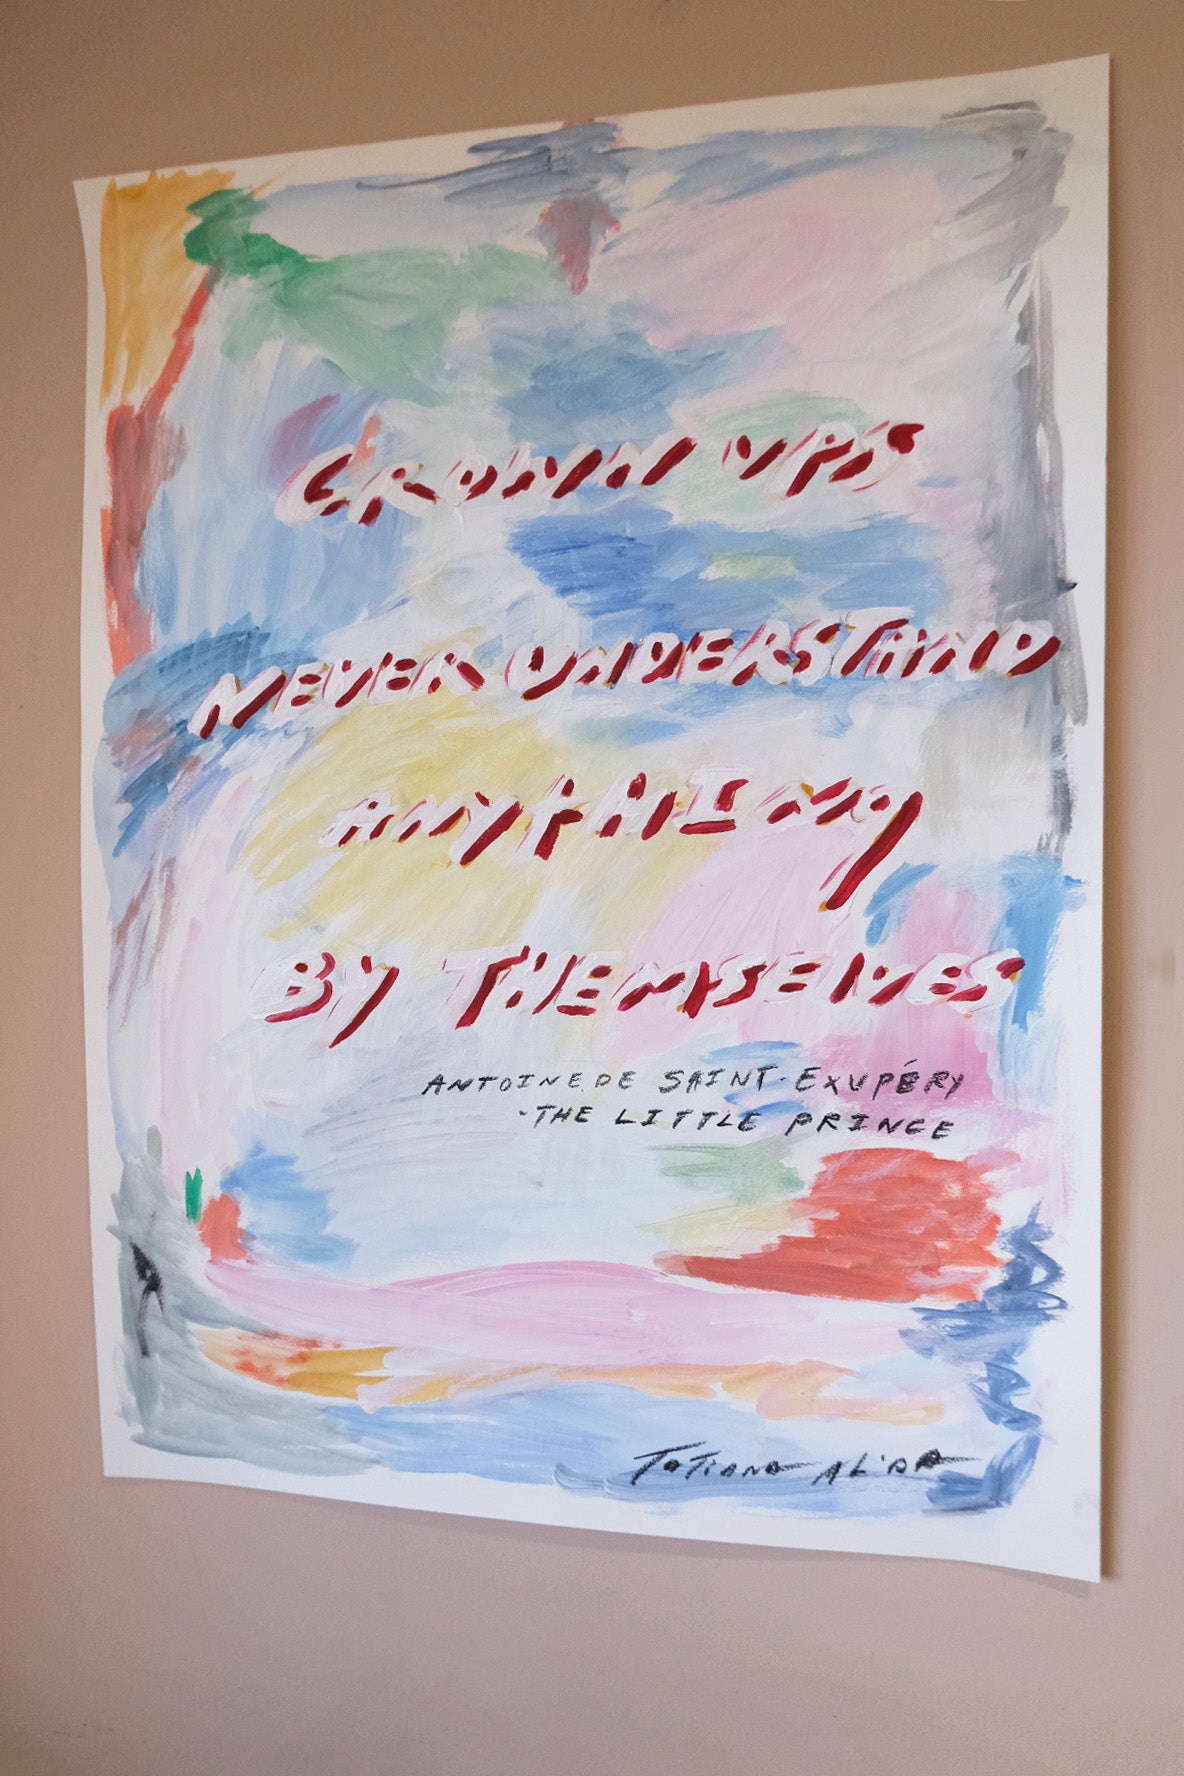 GROWN UPS
NEVER UNDERSTAND
ANYTHING
BY THEMSELVES
ANTOINE DE SAINT-EXUPÉRY
-THE LITTLE PRINCE
TATIANA ALIDA